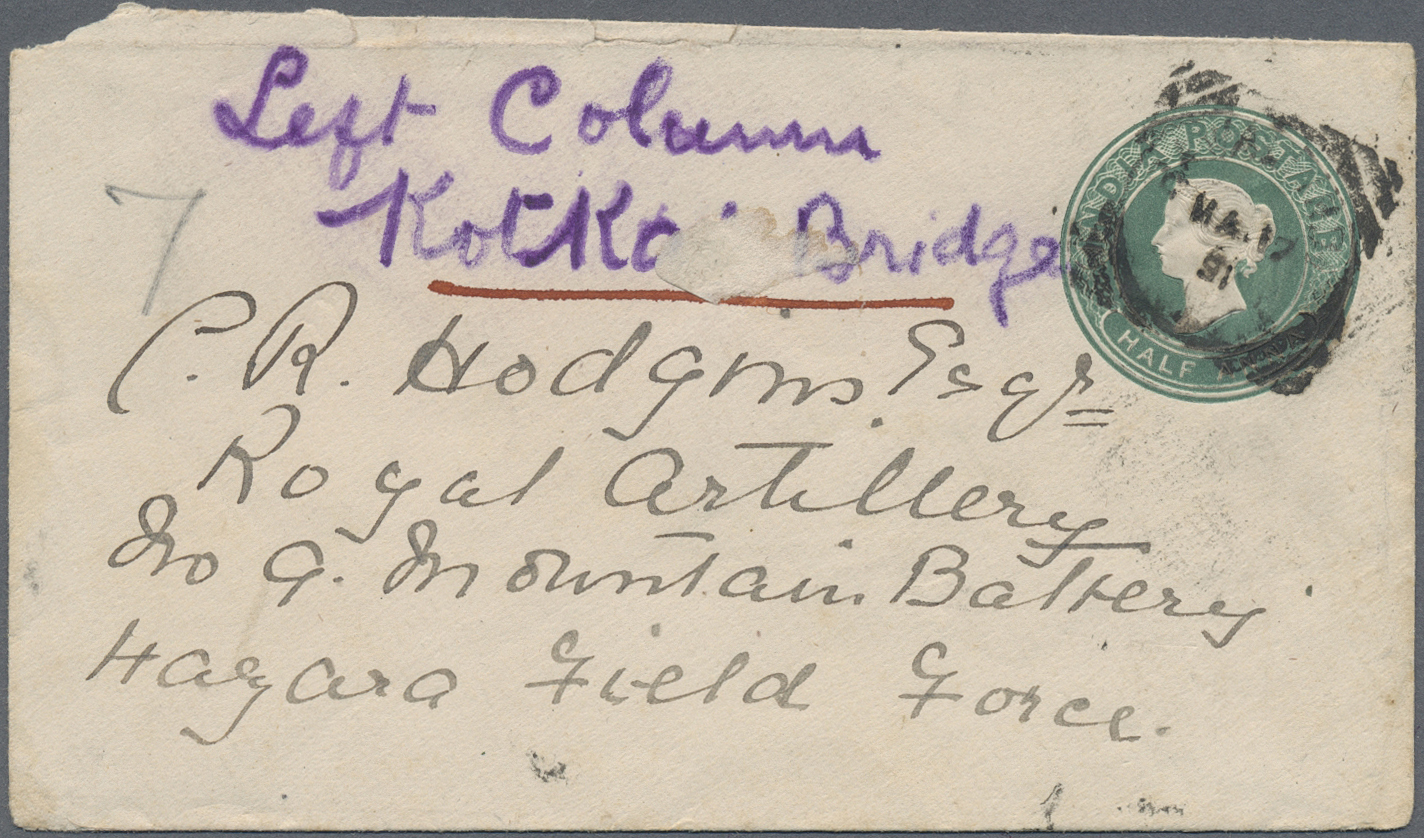 Left Column
Kotkai Bridge
7
INDIA POSTAGE
MA. 17
91
HALF ANNA
C. R. Hodgins. Esqr
Royal Artillery
No 9. Mountain Battery
Hazara Field Force.